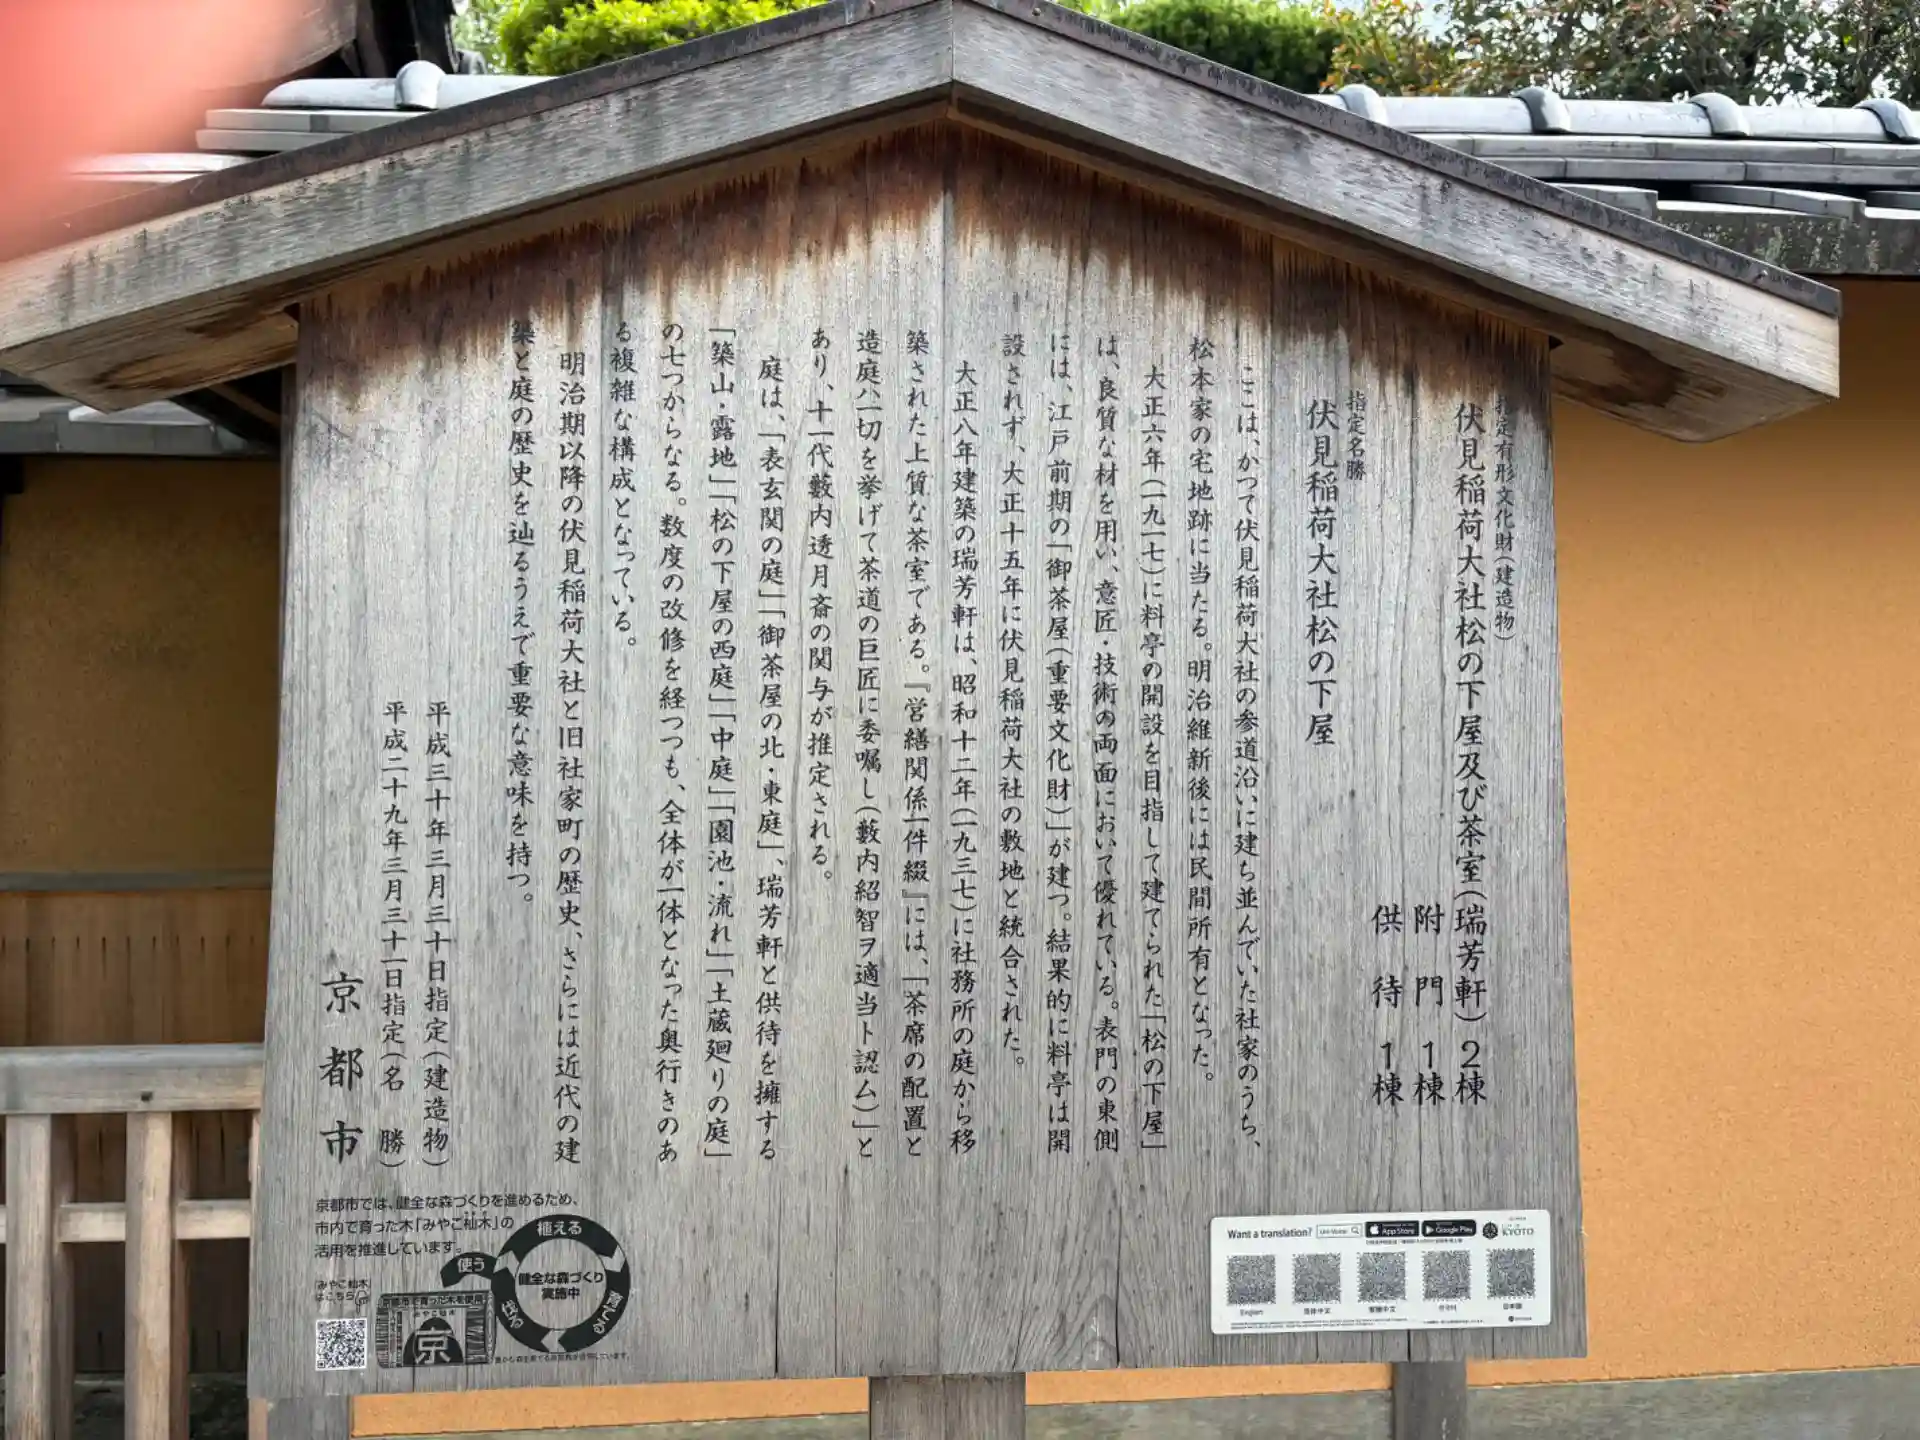 指定有形文化財(建造物)
伏見稲荷大社松の下屋及び茶室(瑞芳軒)2棟
附 門 1棟
供 待 1棟
指定名勝
伏見稲荷大社松の下屋
ここは、かつて伏見稲荷大社の参道沿いに建ち並んでいた社家のうち、
松本家の宅地跡に当たる。明治維新後には民間所有となった。
大正六年(一九一七)に料亭の開設を目指して建てられた「松の下屋」
は、良質な材を用い、意匠・技術の両面において優れている。表門の東側
には、江戸前期の「御茶屋(重要文化財)」が建つ。結果的に料亭は開
設されず、大正十五年に伏見稲荷大社の敷地と統合された。
大正八年建築の瑞芳軒は、昭和十二年(一九三七)に社務所の庭から移
築された上質な茶室である。『営繕関係一件綴』には、「茶席の配置と
造庭ハ一切を挙げて茶道の巨匠に委嘱し(藪内紹智ヲ適当ト認ム)」と
あり、十一代藪内透月斎の関与が推定される。
庭は、「表玄関の庭」「御茶屋の北・東庭」、瑞芳軒と供待を擁する
「築山・露地」「松の下屋の西庭」「中庭」「園池・流れ」「土蔵廻りの庭」
の七つからなる。数度の改修を経つつも、全体が一体となった奥行きのあ
る複雑な構成となっている。
明治期以降の伏見稲荷大社と旧社家町の歴史、さらには近代の建
築と庭の歴史を辿るうえで重要な意味を持つ。
平成三十年三月三十日指定(建造物)
平成二十九年三月三十一日指定(名 勝)
京都市
京都市では、健全な森づくりを進めるため、
市内で育った木「みやこ杣木」の
活用を推進しています。
「みやこ杣木」
はこちら
京都市で育った木を使用
みやこ杣木
京
植える
育てる
伐る
使う
健全な森づくり
実施中
Want a translation?
App Store
Google Play
KYOTO
English
简体中文
繁體中文
한국어
日本語